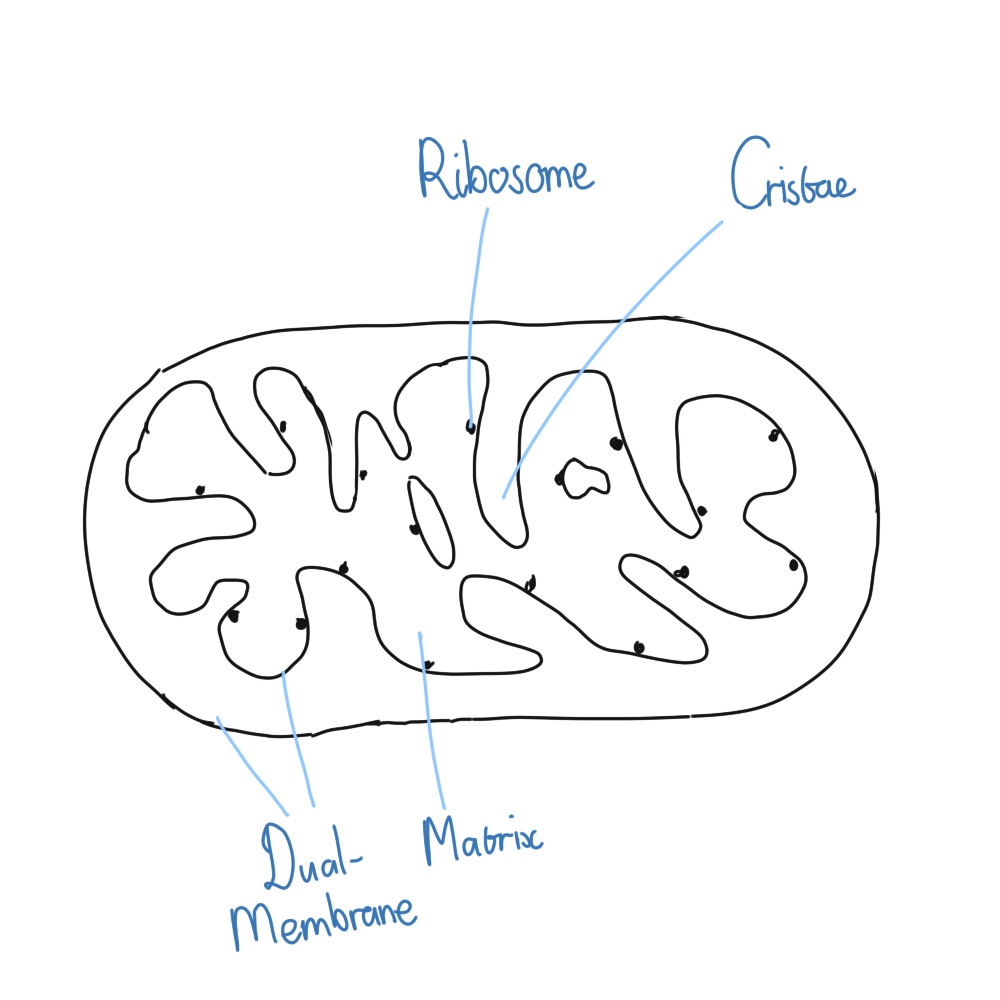 Ribosome
Cristae
Dual-
Membrane
Matrix